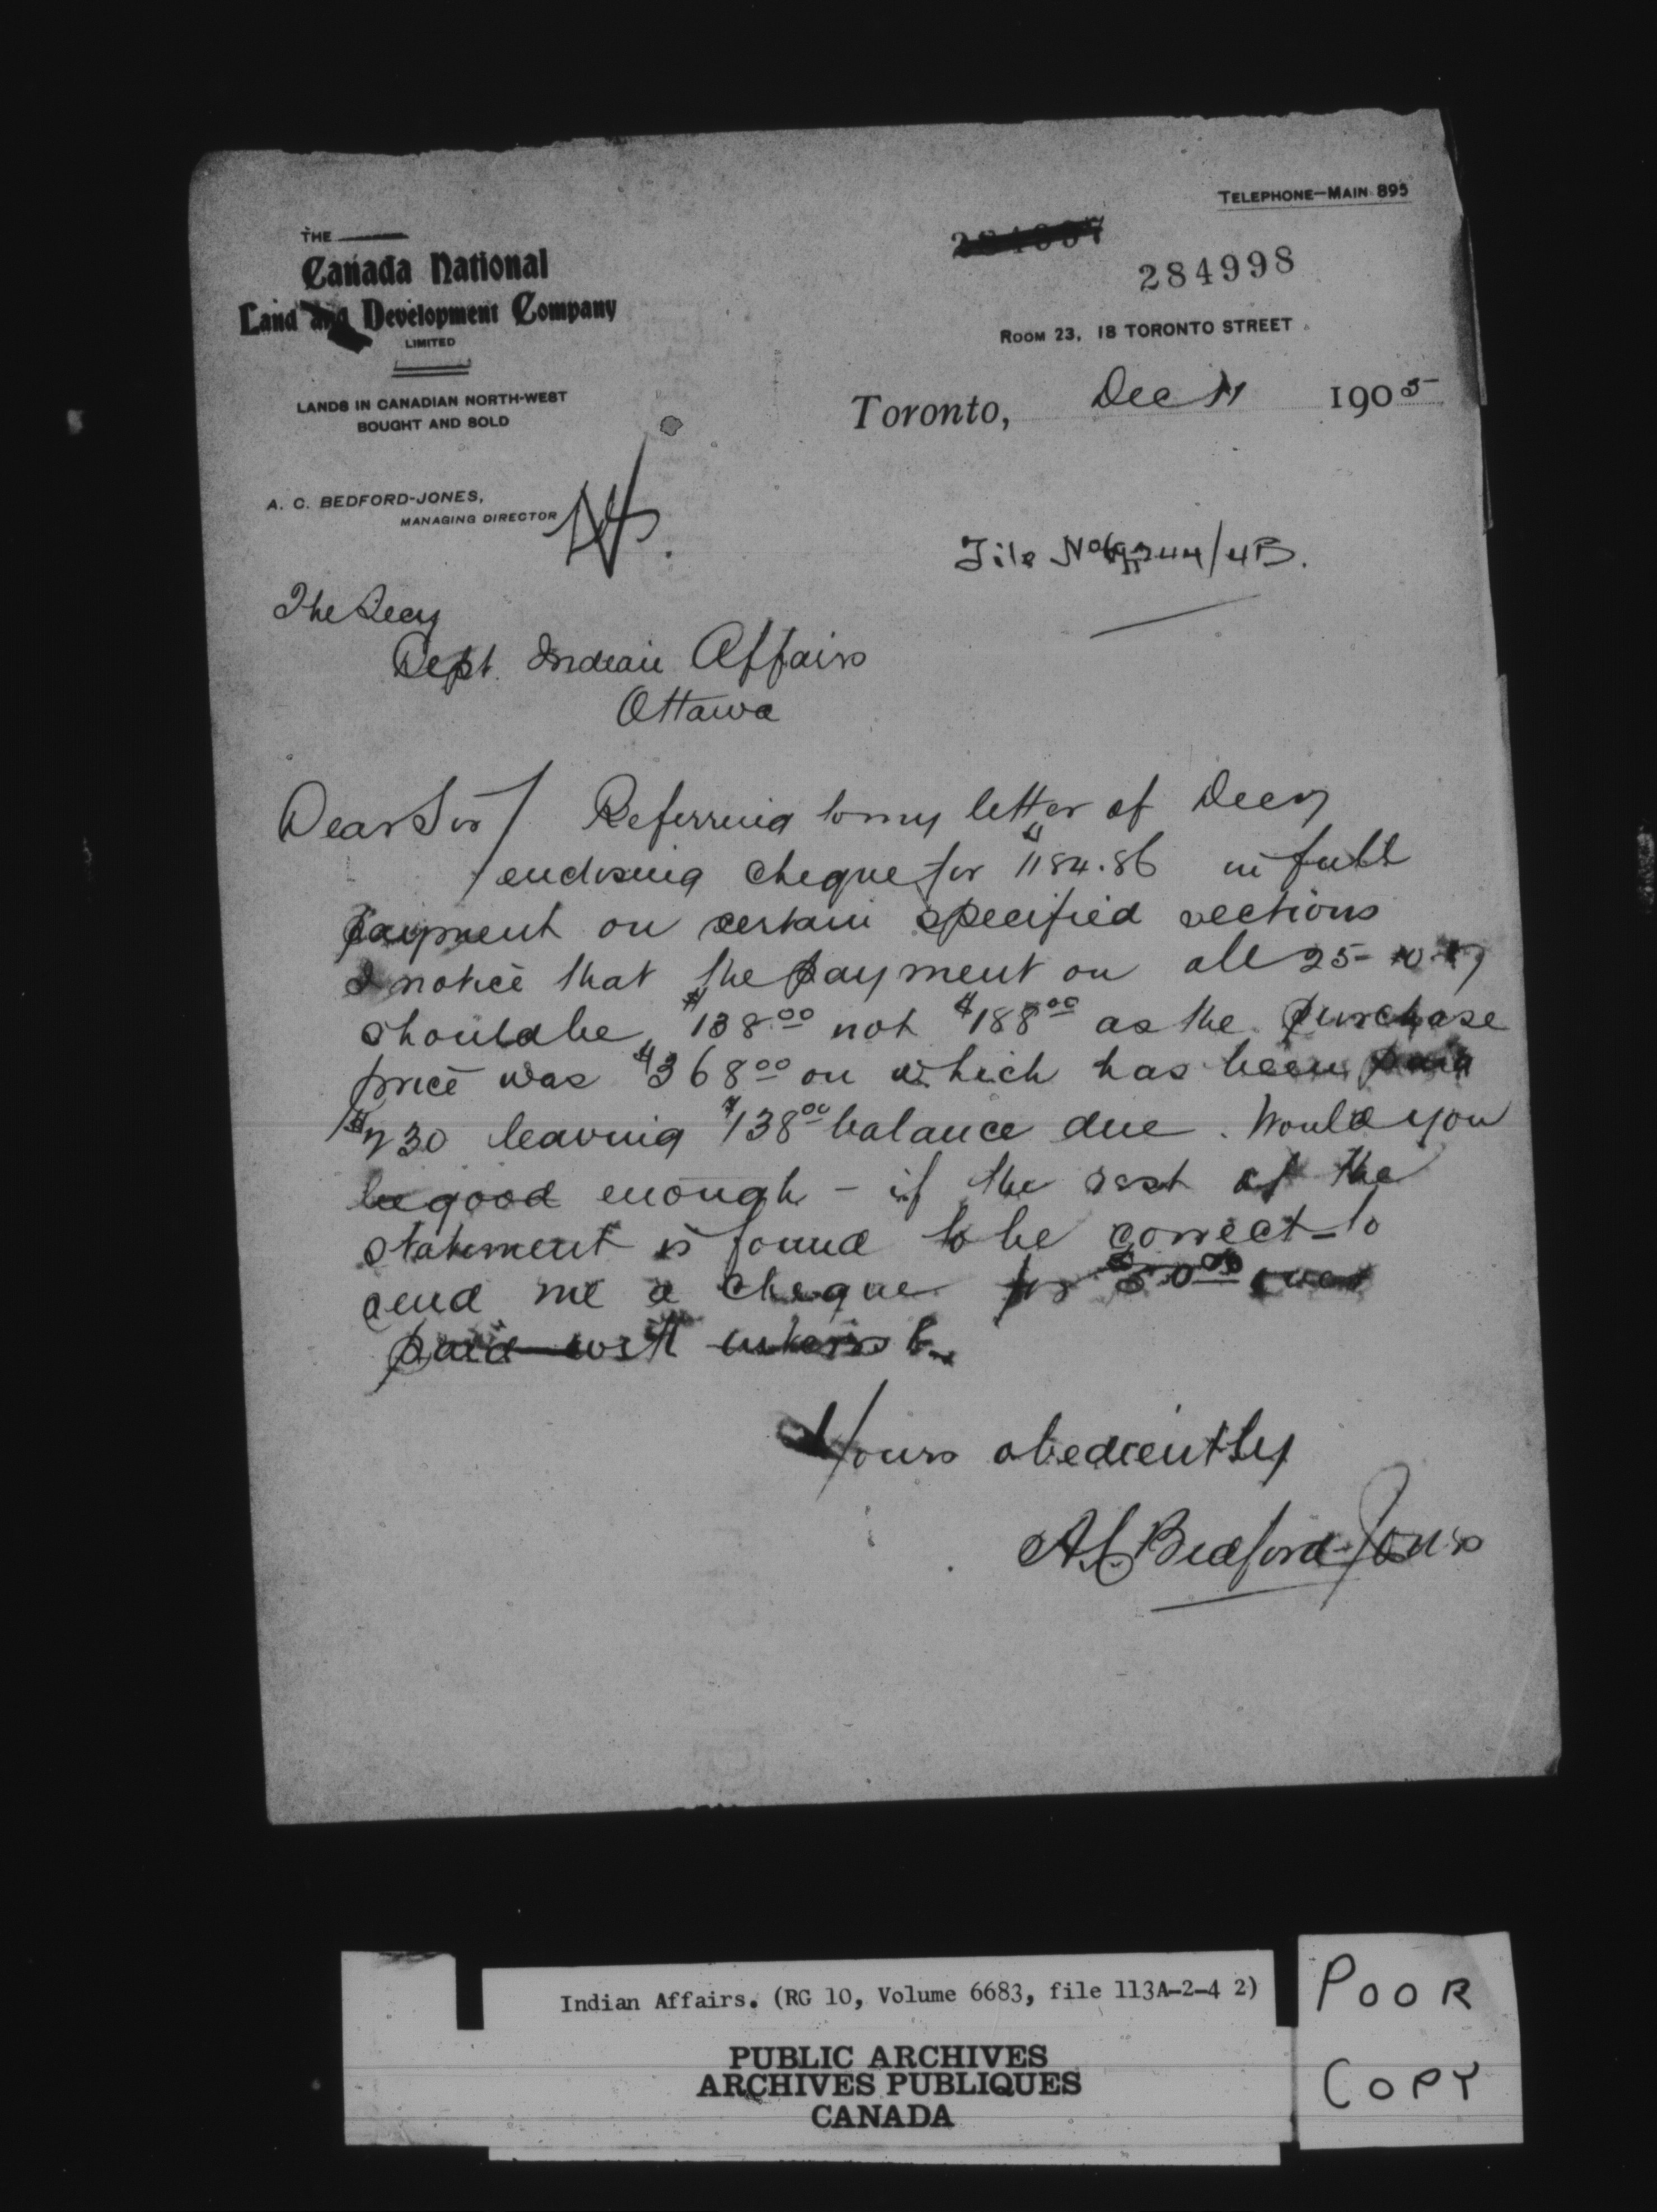 TELEPHONE—MAIN 895
THE
Canada National
Land and Development Company
LIMITED
284998
ROOM 23, 18 TORONTO STREET
LANDS IN CANADIAN NORTH-WEST
BOUGHT AND SOLD
Toronto, Dec 11 1905
A. C. BEDFORD-JONES,
MANAGING DIRECTOR
File No /4B.
The Secy
Dept. Indian Affairs
Ottawa
Dear Sir/ Referring to my letter of Dec 7
enclosing cheque for $1184.86 in full
payment on certain specified sections
I notice that the payment on all 25-10-
should be $138.00 not $188.00 as the purchase
price was $368.00 on which has been paid
$230 leaving $138.00 balance due. Would you
be good enough - if the rest of the
statement is found to be correct - to
send me a cheque for $50.00 over
paid with interest.
Yours obediently
A C Bedford-Jones
Indian Affairs. (RG 10, Volume 6683, file 113A-2-4 2)
PUBLIC ARCHIVES
ARCHIVES PUBLIQUES
CANADA
POOR
COPY